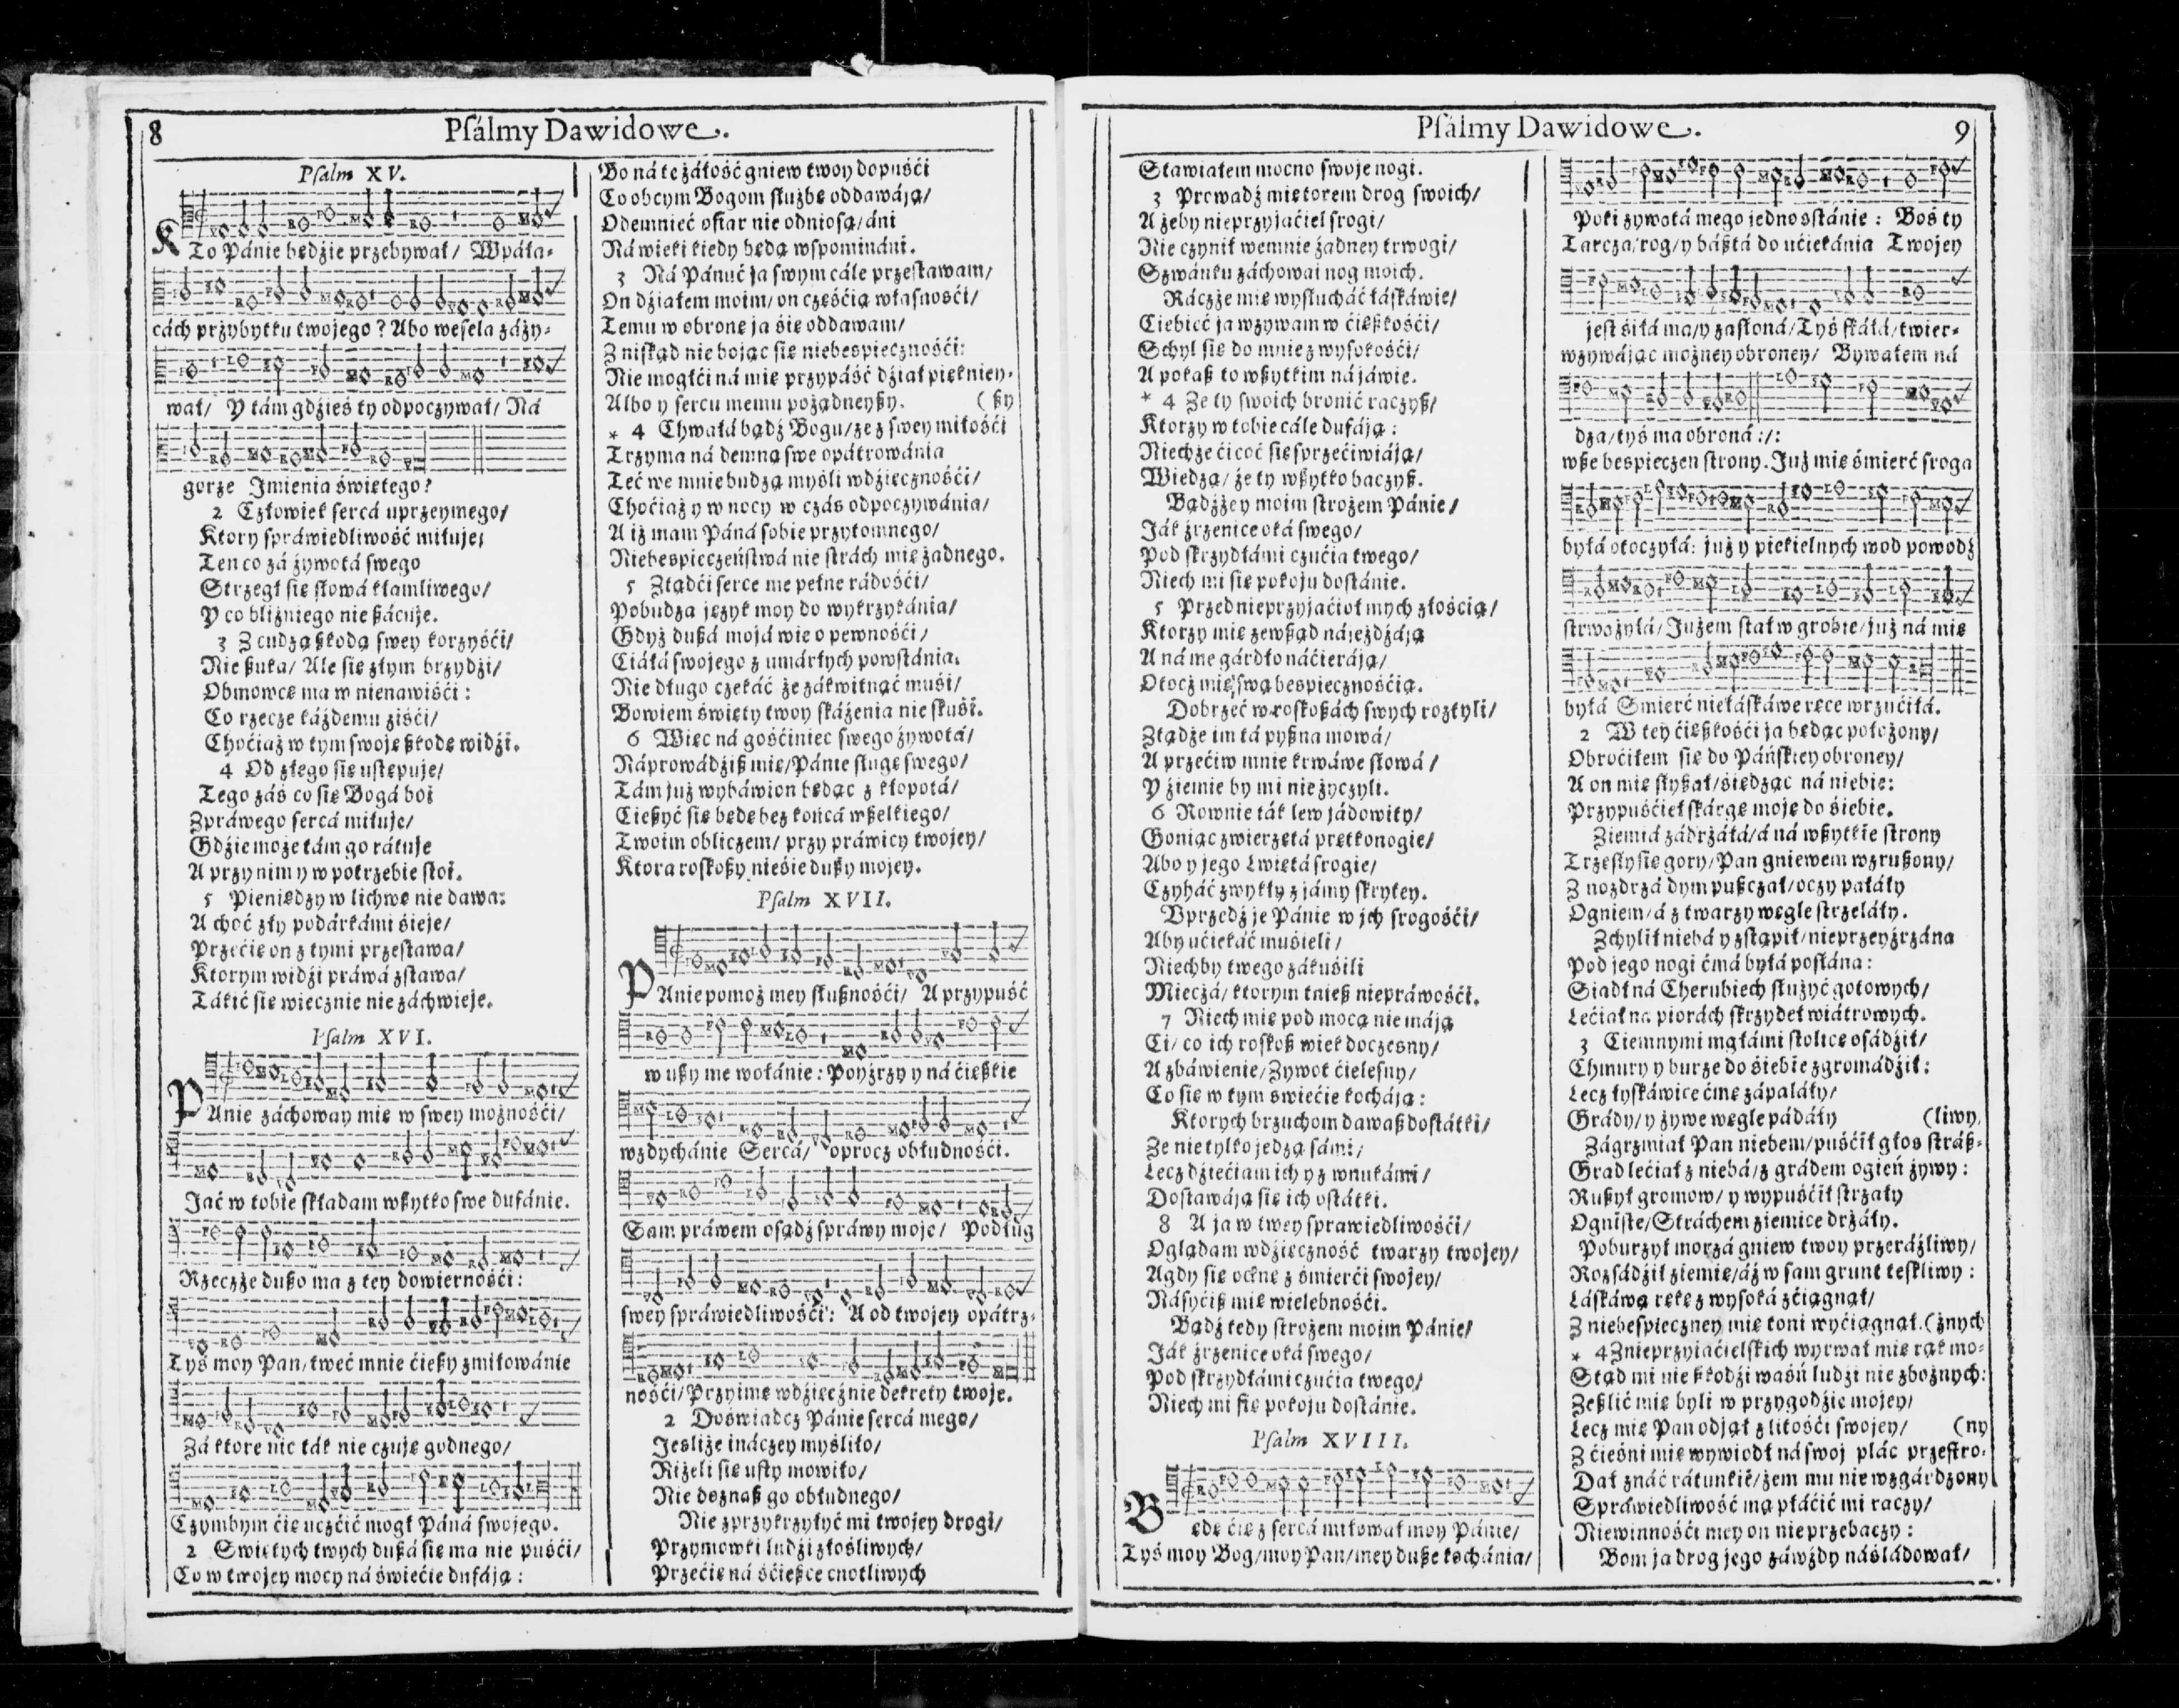 8
Psálmy Dawidowe.
Psalm XV.
KTo Pánie będźie przebywał/ W páła-
cách przybytku twojego? Abo wesela záży-
wał/ Y tám gdźieś ty odpoczywał/ Ná
gorze Imienia świętego?
2 Człowiek sercá uprzeymego/
Ktory spráwiedliwość miłuje;
Ten co zá żywotá swego
Strzegł się słowá kłamliwego/
Y co bliźniego nie ßácuje.
3 Z cudzą ßkodą swey korzyśći/
Nie ßuka/ Ale się złym brzydźi/
Obmowcę ma w nienawiśći:
Co rzecze káżdemu ziśći/
Choćiaż w tym swoję ßkodę widźi.
4 Od złego się ustępuje/
Tego záś co się Bogá boi
Z práwego sercá miłuje/
Gdźie może tám go rátuje
A przy nim y w potrzebie stoi.
5 Pieniędzy w lichwę nie dawa:
A choć zły podárkámi śieje/
Przećię on z tymi przestawa/
Ktorym widźi práwá zstawa/
Tákić się wiecznie nie záchwieje.
Psalm XVI.
PAnie záchoway mię w swey możnośći/
Jać w tobie składam wßytko swe dufánie.
Rzeczże dußo ma z tey dowiernośći:
Tyś moy Pan/ tweć mnie ćießy zmiłowánie
Zá ktore nic ták nie czuję godnego/
Czymbym ćię uczćić mogł Páná swojego.
2 Swiętych twych dußá się ma nie puśći/
Co w twojey mocy ná świećie dufáją:
Bo ná tę záłość gniew twoy dopuśći
Co obcym Bogom służbę oddawáją/
Odemnieć ofiar nie odniosą/ áni
Ná wieki kiedy będą wspominani.
3 Ná Pánuć ja swym cále przestawam/
On dźiałem moim/ on częśćią własnośći/
Temu w obronę ja śię oddawam/
Z nikąd nie bojąc się niebespiecznośći:
Nie mogłći ná mię przypáść dźiał piękniey-
Albo y sercu memu pożądneyßy. (ßy
* 4 Chwałá bądź Bogu/ że z swey miłośći
Trzyma ná demną swe opátrowánia
Teć we mnie budzą myśli wdźięcznośći/
Choćiaż y w nocy w czás odpoczywánia/
A iż mam Páná sobie przytomnego/
Niebespieczeństwá nie strách mię żadnego.
5 Ztądći serce me pełne rádośći/
Pobudza język moy do wykrzykánia/
Gdyż dußá mojá wie o pewnośći/
Ciáłá swojego z umárłych powstánia.
Nie długo czekáć że zákwitnąć muśi/
Bowiem święty twoy skáżenia nie skuśi.
6 Więc ná gośćiniec swego żywotá/
Náprowádźiß mię/ Pánie sługę swego/
Tám już wybáwion będąc z kłopotá/
Cießyć się będę bez końcá wßelkiego/
Twoim obliczem/ przy práwicy twojey/
Ktora roskoßy nieśie dußy mojey.
Psalm XVII.
PAnie pomoż mey słußnośći/ A przypuść
w ußy me wołánie: Poyźrzy y ná ćięßkie
wzdychánie Sercá/ oprocz obłudnośći.
Sam práwem osądź spráwy moje/ Podług
swey spráwiedliwośći: A od twojey opátrz-
nośći/ Przyimę wdźięcznie dekrety twoje.
2 Doświadcz Pánie sercá mego/
Jesliże ináczey myśliło/
Niżeli się usty mowiło/
Nie doznaß go obłudnego/
Nie zprzykrzyłyć mi twojey drogi/
Przymowki ludźi złośliwych/
Przećię ná śćießce cnotliwych
Psálmy Dawidowe.
9
Stawiałem mocno swoje nogi.
3 Prowadź mię torem drog swoich/
A żeby nieprzyjaćiel srogi/
Nie czynił wemnie żadney trwogi/
Szwánku záchowai nog moich.
Ráczże mię wysłucháć łáskáwie/
Ciebieć ja wzywam w ćięßkośći/
Schyl się do mnie z wysokośći/
A pokaß to wßytkim ná jáwie.
* 4 Że ty swoich bronić raczyß/
Ktorzy w tobie cále dufáją:
Niechże ći coć się sprzećiwiáją/
Wiedzą/ że ty wßytko baczyß.
Bądźżey moim strożem Pánie/
Ják źrzenice oká swego/
Pod skrzydłámi czućia twego/
Niech mi się pokoju dostánie.
5 Przed nieprzyjaćioł mych złośćią/
Ktorzy mię zewßąd nájeżdżáją
A ná me gárdło náćieráją/
Otocż mię swą bespiecznośćią.
Dobrzeć w roskoßách swych roztyli/
Ztądże im tá pyßna mowá/
A przećiw mnie krwáwe słowá/
Y źiemie by mi nie życzyli.
6 Rownie ták lew jádowity/
Goniąc zwierzętá prętkonogie/
Abo y jego Lwiętá srogie/
Czyháć zwykły z jámy skrytey.
Vprzedź je Pánie w jch srogośći/
Aby ućiekáć muśieli/
Niechby twego zákuśili
Mieczá/ ktorym tnieß niepráwośći.
7 Niech mię pod mocą nie máją
Ci/ co ich roskoß wiek doczesny/
A zbáwienie/ Żywot ćielesny/
Co się w tym świećie kocháją:
Ktorych brzuchom dawaß dostátki/
Że nie tylko jedzą sámi/
Lecz dźiećiam ich y z wnukámi/
Dostawáją się ich ostátki.
8 A ja w twey sprawiedliwośći/
Oglądam wdźięczność twarzy twojey/
A gdy się ocknę z śmierći swojey/
Násyćiß mię wielebnośći.
Bądź tedy strożem moim Pánie/
Ják źrzenice oká swego/
Pod skrzydłámi czućia twego/
Niech mi się pokoju dostánie.
Psalm XVIII.
Będę ćię z sercá miłował moy Pánie/
Tyś moy Bog/ moy Pan/ mey duße kochánia/
Poki żywotá mego jedno sstánie: Boś ty
Tarcza/ rog/ y báßtá do ućiekánia Twojey
jest śiłá ma/ y zasłoná/ Tyś skáłá/ twier-
wzywájąc możney obroney/ Bywałem ná
dza/ tyś ma obroná :/:
wße bespieczen strony. Już mię śmierć sroga
byłá otoczyłá: już y piekielnych wod powodź
strwożyłá/ Jużem stał w grobie/ już ná mię
byłá Smierć niełáskáwe ręce wrzućiłá.
2 W tey ćięßkośći ja będąc położony/
Obroćiłem się do Páńskiey obroney/
A on mię słyßał/ śiedząc ná niebie:
Przypuśćieł skárgę moję do śiebie.
Ziemiá zádrżáłá/ á ná wßytkie strony
Trzęsły się gory/ Pan gniewem wzrußony/
Z nozdrzá dym pußczał/ oczy pałáły
Ogniem/ á z twarzy węgle strzeláły.
Zchylił niebá y zstąpił/ nieprzeyźrzána
Pod jego nogi ćmá byłá posłána:
Siadł ná Cherubiech służyć gotowych/
Lećiał na piorách skrzydeł wiátrowych.
3 Ciemnymi mgłámi stolicę osádźił/
Chmury y burze do śiebie zgromádźił:
Lecz łyskáwice ćmę zápaláły/
Grády/ y żywe węgle pádáły (liwy,
Zágrzmiał Pan niebem/ puśćił głos stráß-
Grad lećiał z niebá/ z grádem ogień żywy:
Rußył gromow/ y wypuśćił strzały
Ogniste/ Stráchem źiemice drżáły.
Poburzył morzá gniew twoy przeráźliwy/
Rozsádźił źiemię/ áż w sam grunt teskliwy:
Láskáwą rękę z wysoká zćiągnął/
Z niebespieczney mię toni wyćiągnął. (żnych
* 4 Z nieprzyiaćielskich wyrwał mię rąk mo-
Stąd mi nie ßkodźi waśń ludźi niezbożnych:
Zeßlić mię byli w przygodźie mojey/
Lecz mię Pan odjął z litośći swojey/ (ny
Z ćieśni mię wywiodł ná swoj plác przestro-
Dał znáć rátunkiē/ żem mu nie wzgárdzony
Spráwiedliwość mą płáćić mi raczy/
Niewinnośći mey on nie przebaczy:
Bom ja drog jego záwżdy náśládował/